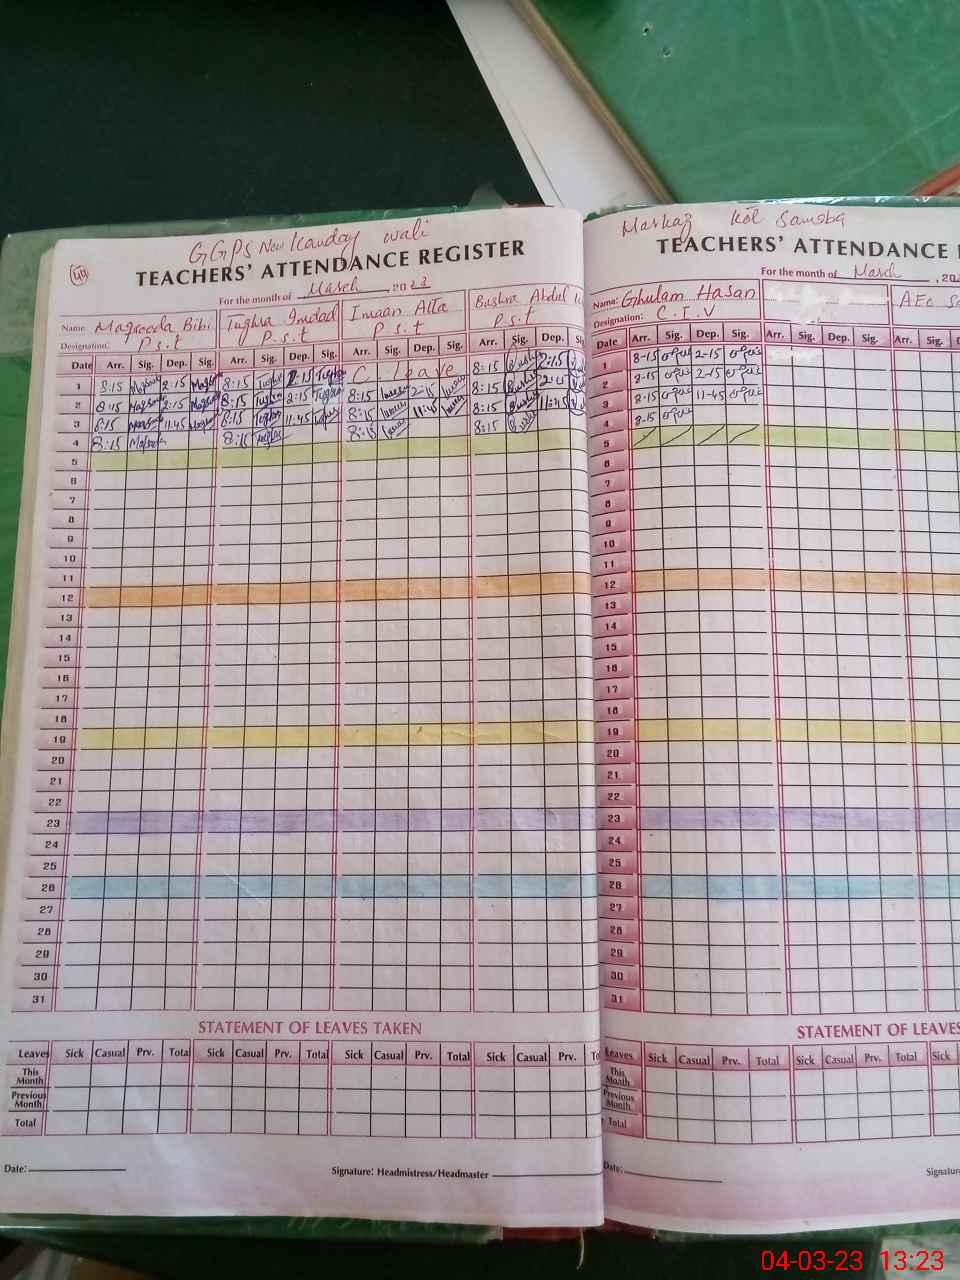 40
GGPS New Kanday wali
TEACHERS' ATTENDANCE REGISTER
For the month of March, 2023
Name Maqsooda Bibi Tughra Imdad Imaan Atta Bushra Abdul
Designation: P.s.t P.s.t P.s.t P.s.t
Date Arr. Sig. Dep. Sig. Arr. Sig. Dep. Sig. Arr. Sig. Dep. Sig. Arr. Sig. Dep. Sig.
1 8:15 2:15 8:15 2:15 C Leave 8:15 2:15
2 8:15 2:15 8:15 2:15 8:15 2:15 8:15
3 8:15 11:45 8:15 11:45 8:15 11:45 8:15 11:45
4 8:15 8:15 8:15 8:15
5
6
7
8
9
10
11
12
13
14
15
16
17
18
19
20
21
22
23
24
25
26
27
28
29
30
31
STATEMENT OF LEAVES TAKEN
Leaves Sick Casual Prv. Total Sick Casual Prv. Total Sick Casual Prv. Total Sick Casual Prv. To
This Month
Previous Month
Total
Date:
Signature: Headmistress/Headmaster
Markaz Kol Sanoba
TEACHERS' ATTENDANCE
For the month of March, 202
Name: Ghulam Hasan AEO
Designation: C.I.V
Date Arr. Sig. Dep. Sig. Arr. Sig. Dep. Sig. Arr. Sig.
1 8-15 2-15
2 8-15 2-15
3 8-15 11-45
4 8-15
5
6
7
8
9
10
11
12
13
14
15
16
17
18
19
20
21
22
23
24
25
26
27
28
29
30
31
STATEMENT OF LEAVES
Leaves Sick Casual Prv. Total Sick Casual Prv. Total Sick
This Month
Previous Month
Total
Date:
Signature
04-03-23 13:23